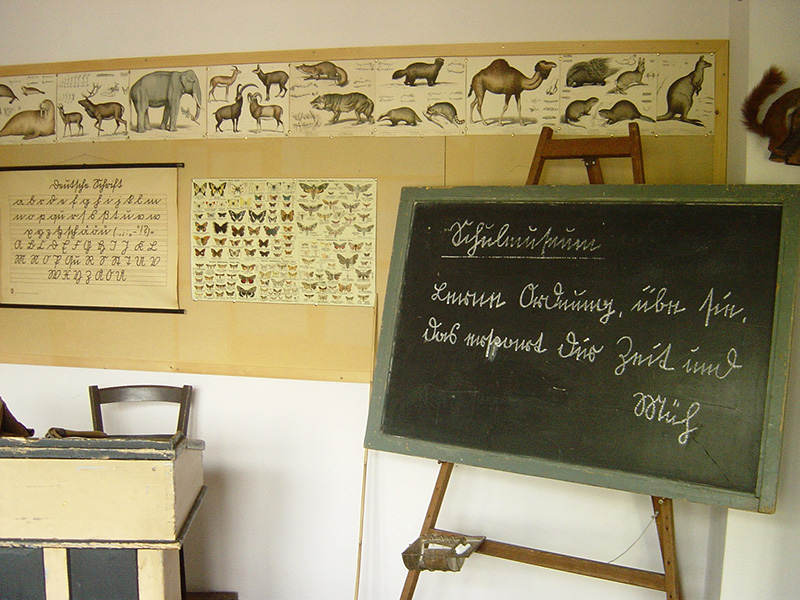 Deutsche Schrift
a b c d e f g h i j k l m
n o p q u r s ß t ü v w
x y z ä ö ü
A B C D E F G H I J K L
M N O P Qu R S T U V
W X Y Z Ä Ö Ü
Schulmuseum
Lerne Ordnung, übe sie,
das erspart dir Zeit und
Müh